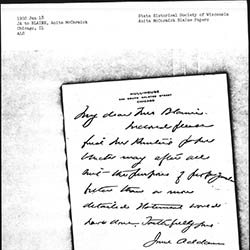 1900 Jan 13
JA to BLAINE, Anita McCormick
Chicago, IL
ALS
State Historical Society of Wisconsin
Anita McCormick Blaine Papers
HULL-HOUSE
335 SOUTH HALSTED STREET
CHICAGO
My dear Mrs Blaine.
Enclosed please
find Mrs
letter may after all
the purpose of
better than a more
detailed statement would
have done. Faithfully yrs
Jane Addams